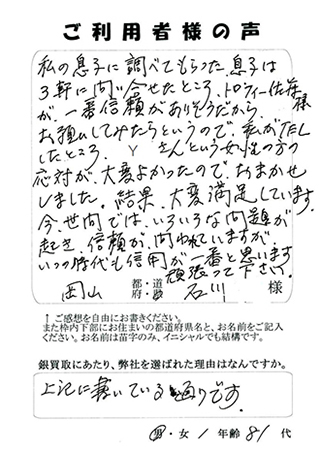 ご利用者様の声
私の息子に調べてもらった。息子は
3軒に問い合せたところ、トロフィー佐藤様
が、一番信頼がありそうだから、
お願いしてみたらというので、私がTEL
したところ、Yさんという女性の方の
応対が、大変よかったので、おまかせ
しました。結果、大変満足しています。
今、世間では、いろいろな問題が
起き、信頼が、問われていますが、
いつの時代も信用が一番と思います
頑張って下さい。
岡山 都・道 府・県 石川 様
↑ご感想を自由にお書きください。
また枠内下部にお住まいの都道府県名と、お名前をご記入
ください。お名前は苗字のみ、イニシャルでも結構です。
銀買取にあたり、弊社を選ばれた理由はなんですか。
上記に書いている通りです。
男・女／年齢 81 代